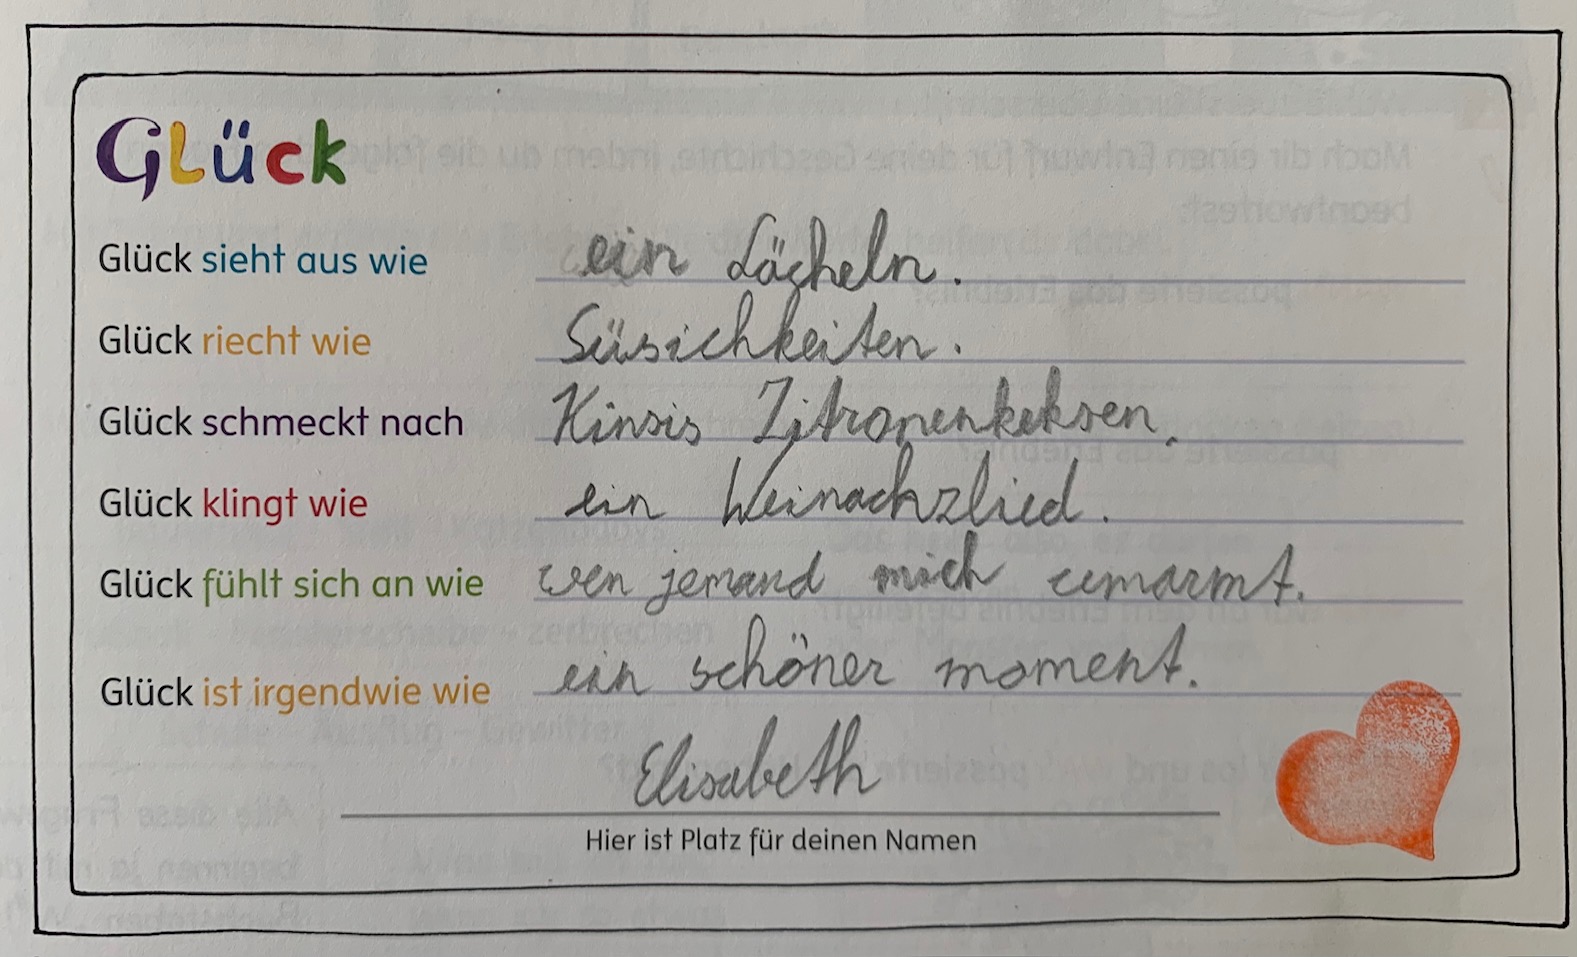 Glück
Glück sieht aus wie ein Lächeln.
Glück riecht wie Süsichkeiten.
Glück schmeckt nach Kinsis Zitronenkeksen.
Glück klingt wie ein Weinachzlied.
Glück fühlt sich an wie wen jemand mich umarmt.
Glück ist irgendwie wie ein schöner moment.
Elisabeth
Hier ist Platz für deinen Namen